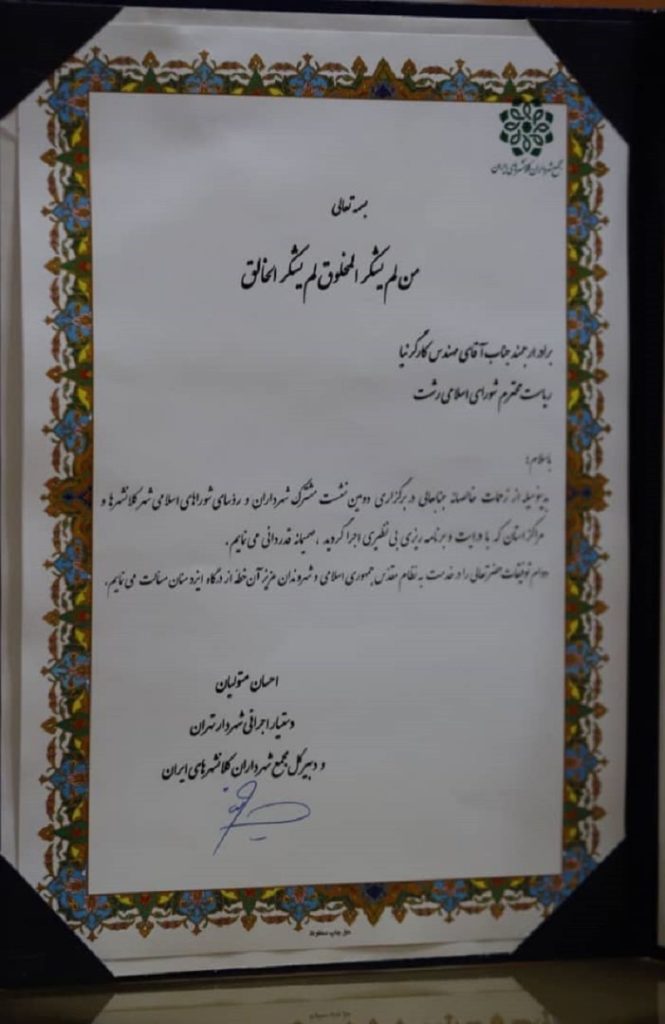 مجمع شهرداران کلانشهرهای ایران
بسمه تعالی
من لم یشکر المخلوق لم یشکر الخالق
برادر ارجمند جناب آقای مهندس کارگرنیا
ریاست محترم شورای اسلامی رشت
باسلام؛
بدینوسیله از زحمات خالصانه جنابعالی در برگزاری دومین نشست مشترک شهرداران و رؤسای شوراهای اسلامی شهر کلانشهرها و
مراکز استان که با درایت و برنامه ریزی بی نظیری اجرا گردید ، صمیمانه قدردانی می نمایم .
دوام توفیقات حضرتعالی را در خدمت به نظام مقدس جمهوری اسلامی و شهروندان عزیز آن خطه از درگاه ایزد منان مسألت می نمایم.
احسان متولیان
دستیار اجرائی شهردار تهران
و دبیرکل مجمع شهرداران کلانشهرهای ایران
حق چاپ محفوظ